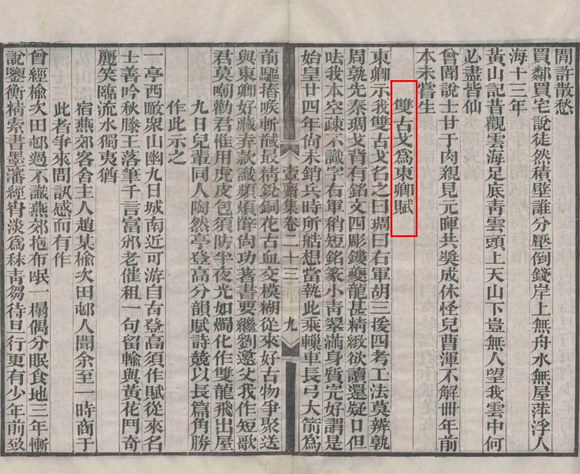 閒許散愁
買鄰買宅說徒然積壁誰分壓倒錢岸上無舟水無屋萍浮人
海十三年
黃山記昔觀雲海足底青雲頭上天山下豈無人望我雲中何
必盡皆仙
曾聞說士甘于肉親見元暉共獎成休怪兒曹渾不解卌年前
本未嘗生
雙古戈爲東卿賦
東卿示我雙古戈名之曰琱曰右軍胡三援四考工法莫辨孰
周孰先秦琱戈背有銘文四彫鏤夔龍甚精緻欲讀還疑口但
呿我本空疎不識字右軍稍短銘篆小青翠滿身質完好謂是
始皇廿四年偷未銷兵時所艁想當執此乘轈車長弓大箭爲
壹齋集卷二十三 九
前驅捲斬馘最精銳銅花古血交模糊從來好古物爭聚送
與東卿好藏弆款識煩薛尚功著書要繼劉父我作短歌
君莫嘲勸君惟用虎皮包須防半夜光如燭化作雙龍飛出屋
九日兒輩同人陶然亭登高分韻賦詩競以長篇角勝
作此示之
一亭西瞰衆山幽九日城南近可游自古登高須作賦從來名
士善吟秋滕王落筆千言富邠老催租一句留輸與黃花鬥奇
麗笑臨流水獨夷猶
宿燕郊客舍主人趙某榆次田邨人聞余至一時商于
此者爭來問訊感而有作
曾經榆次田邨過不識燕郊抱布氓一榻偶分眠食地三年慚
說鑒衡精書墨瀋經淡爲秣青芻待旦行更有少年前致